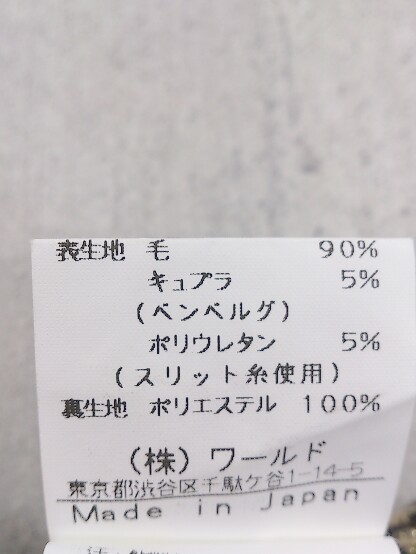 表生地 毛 90%
キュプラ 5%
(ベンベルグ)
ポリウレタン 5%
(スリット糸使用)
裏生地 ポリエステル 100%
(株)ワールド
東京都渋谷区千駄ケ谷1-14-5
Made in Japan